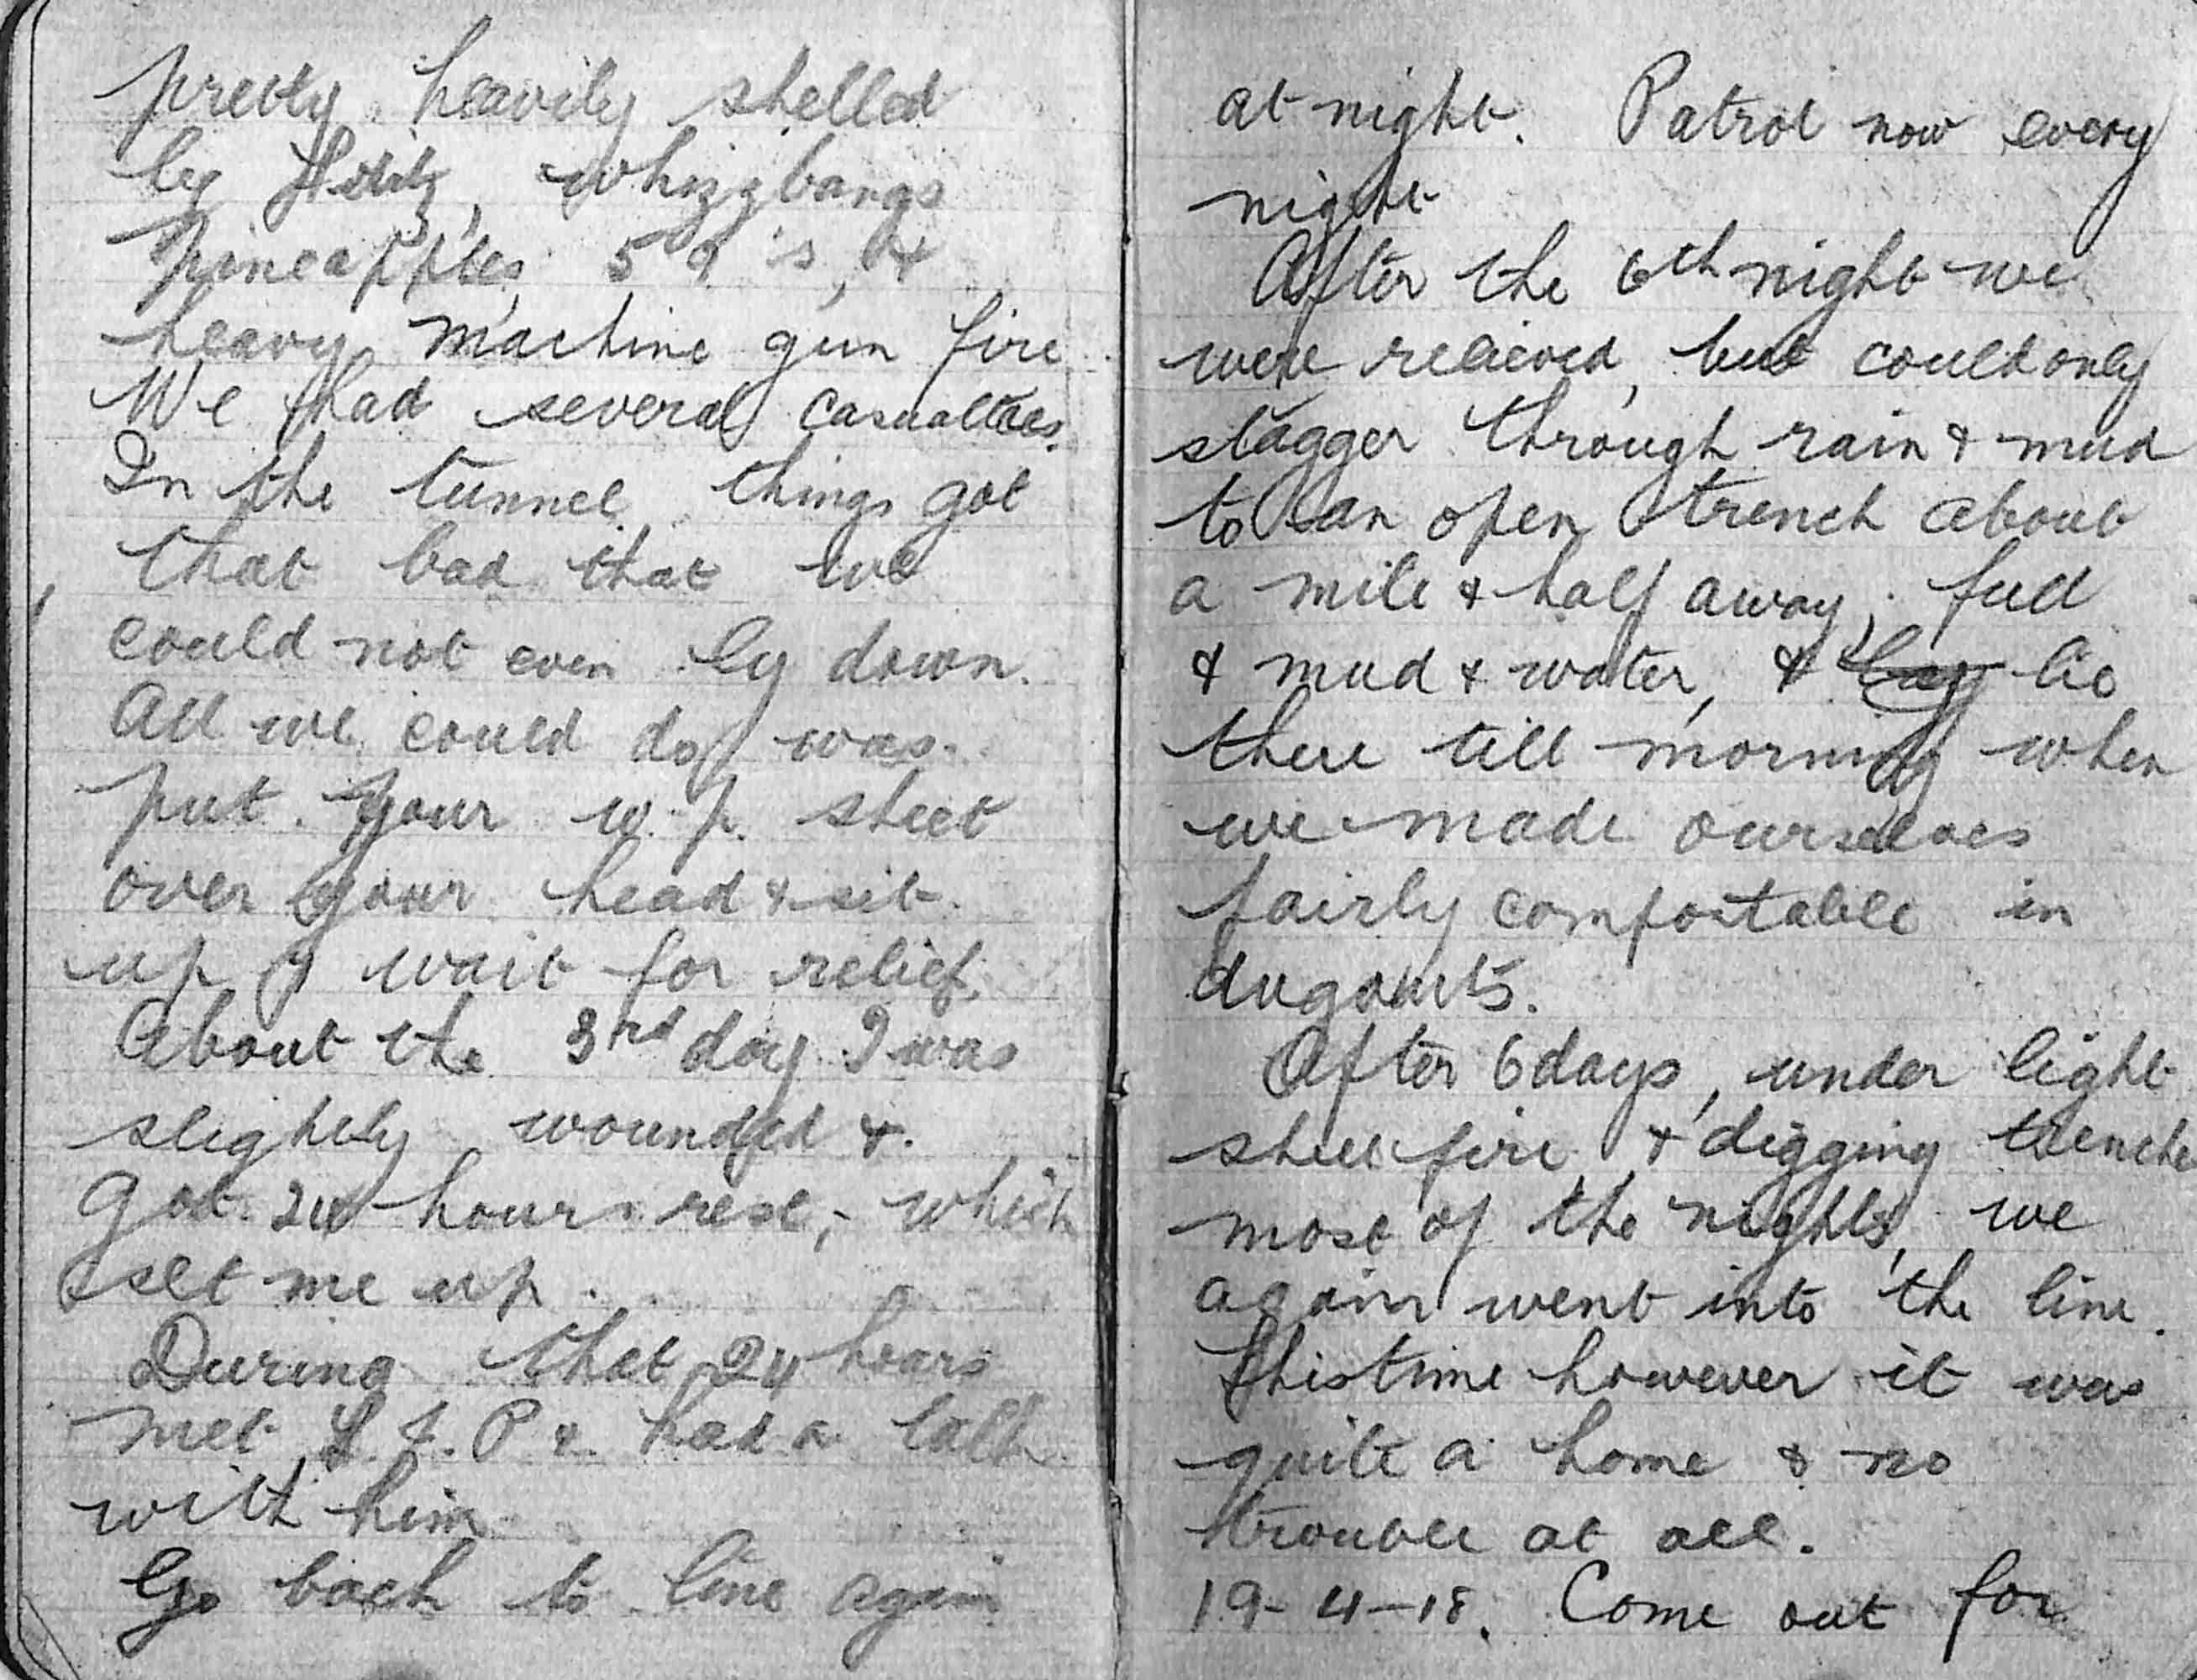 pretty heavily shelled
by Fritz, whizzbangs
pineapples, 5 9's, &
heavy machine gun fire
We had several casualties.
In the tunnel things got
that bad that we
could not even ly down.
All we could do was
put your w.p. sheet
over your head & sit
up & wait for relief.
About the 3rd day I was
slightly wounded &
got 24 hours rest, which
set me up.
During that 24 hours
met P & had a talk
with him
Go back to line again
at night. Patrol now every
night
After the 6th night we
were relieved, but could only
stagger through rain & mud
to an open trench about
a mile & half away, full
& mud & water, & lay lie
there till morning when
we made ourselves
fairly comfortable in
dugouts.
After 6 days, under light
shell fire & digging trenche
most of the nights, we
again went into the line.
This time however it was
quite a home & no
trouble at all.
19-4-18. Come out for